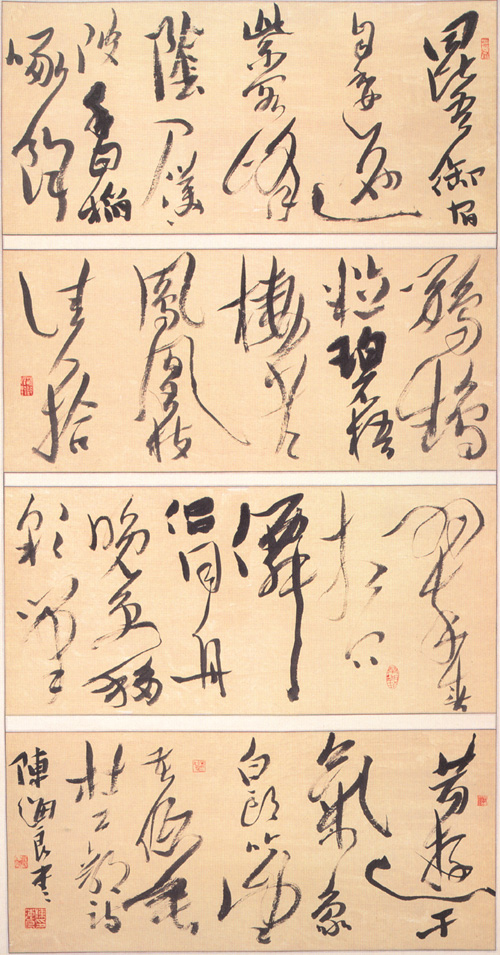 昆吾御宿
自逶迤
紫閣峰
陰入渼
陂香稻
啄餘
鸚鵡
粒碧梧
棲老
鳳凰枝
佳人拾
翠春
相問
僊
侶同舟
晚更移
彩筆
昔游干
氣象
白頭吟望
苦低垂
杜工部詩
陳海良書